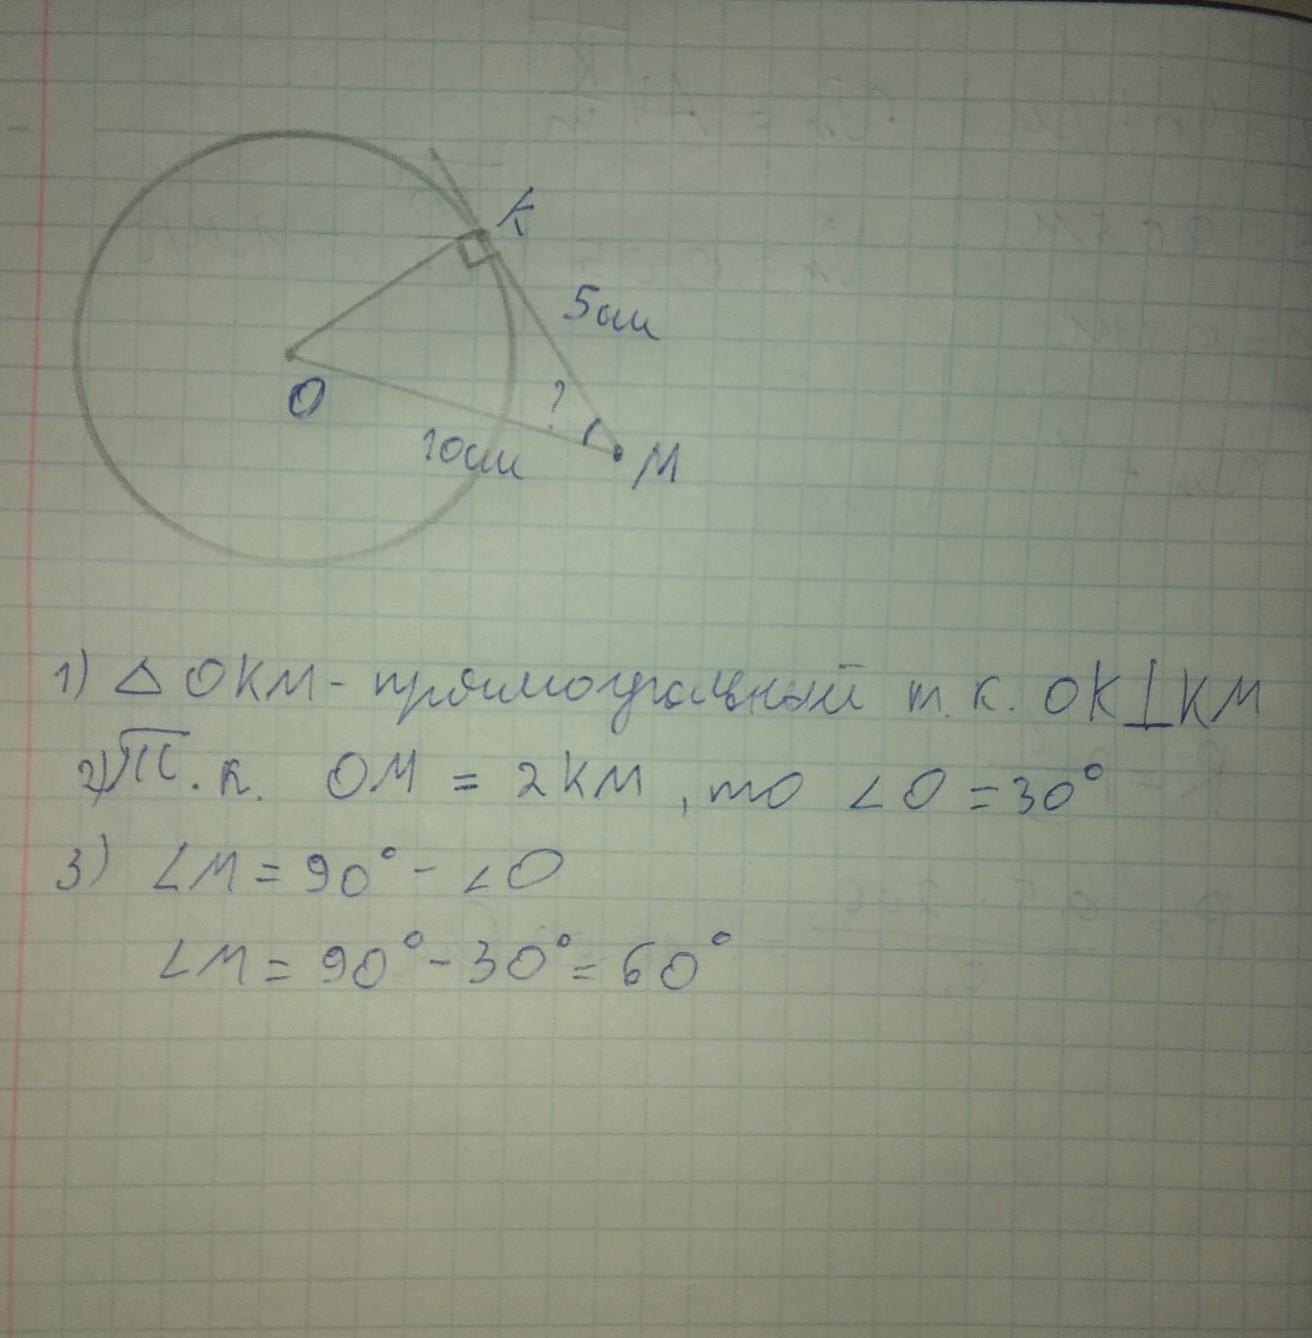 K
5см
O
?
10см
M
1) △ OKM - прямоугольный т.к. OK⊥KM
2) Т.к. OM = 2KM, то ∠O = 30°
3) ∠M = 90° - ∠O
∠M = 90° - 30° = 60°